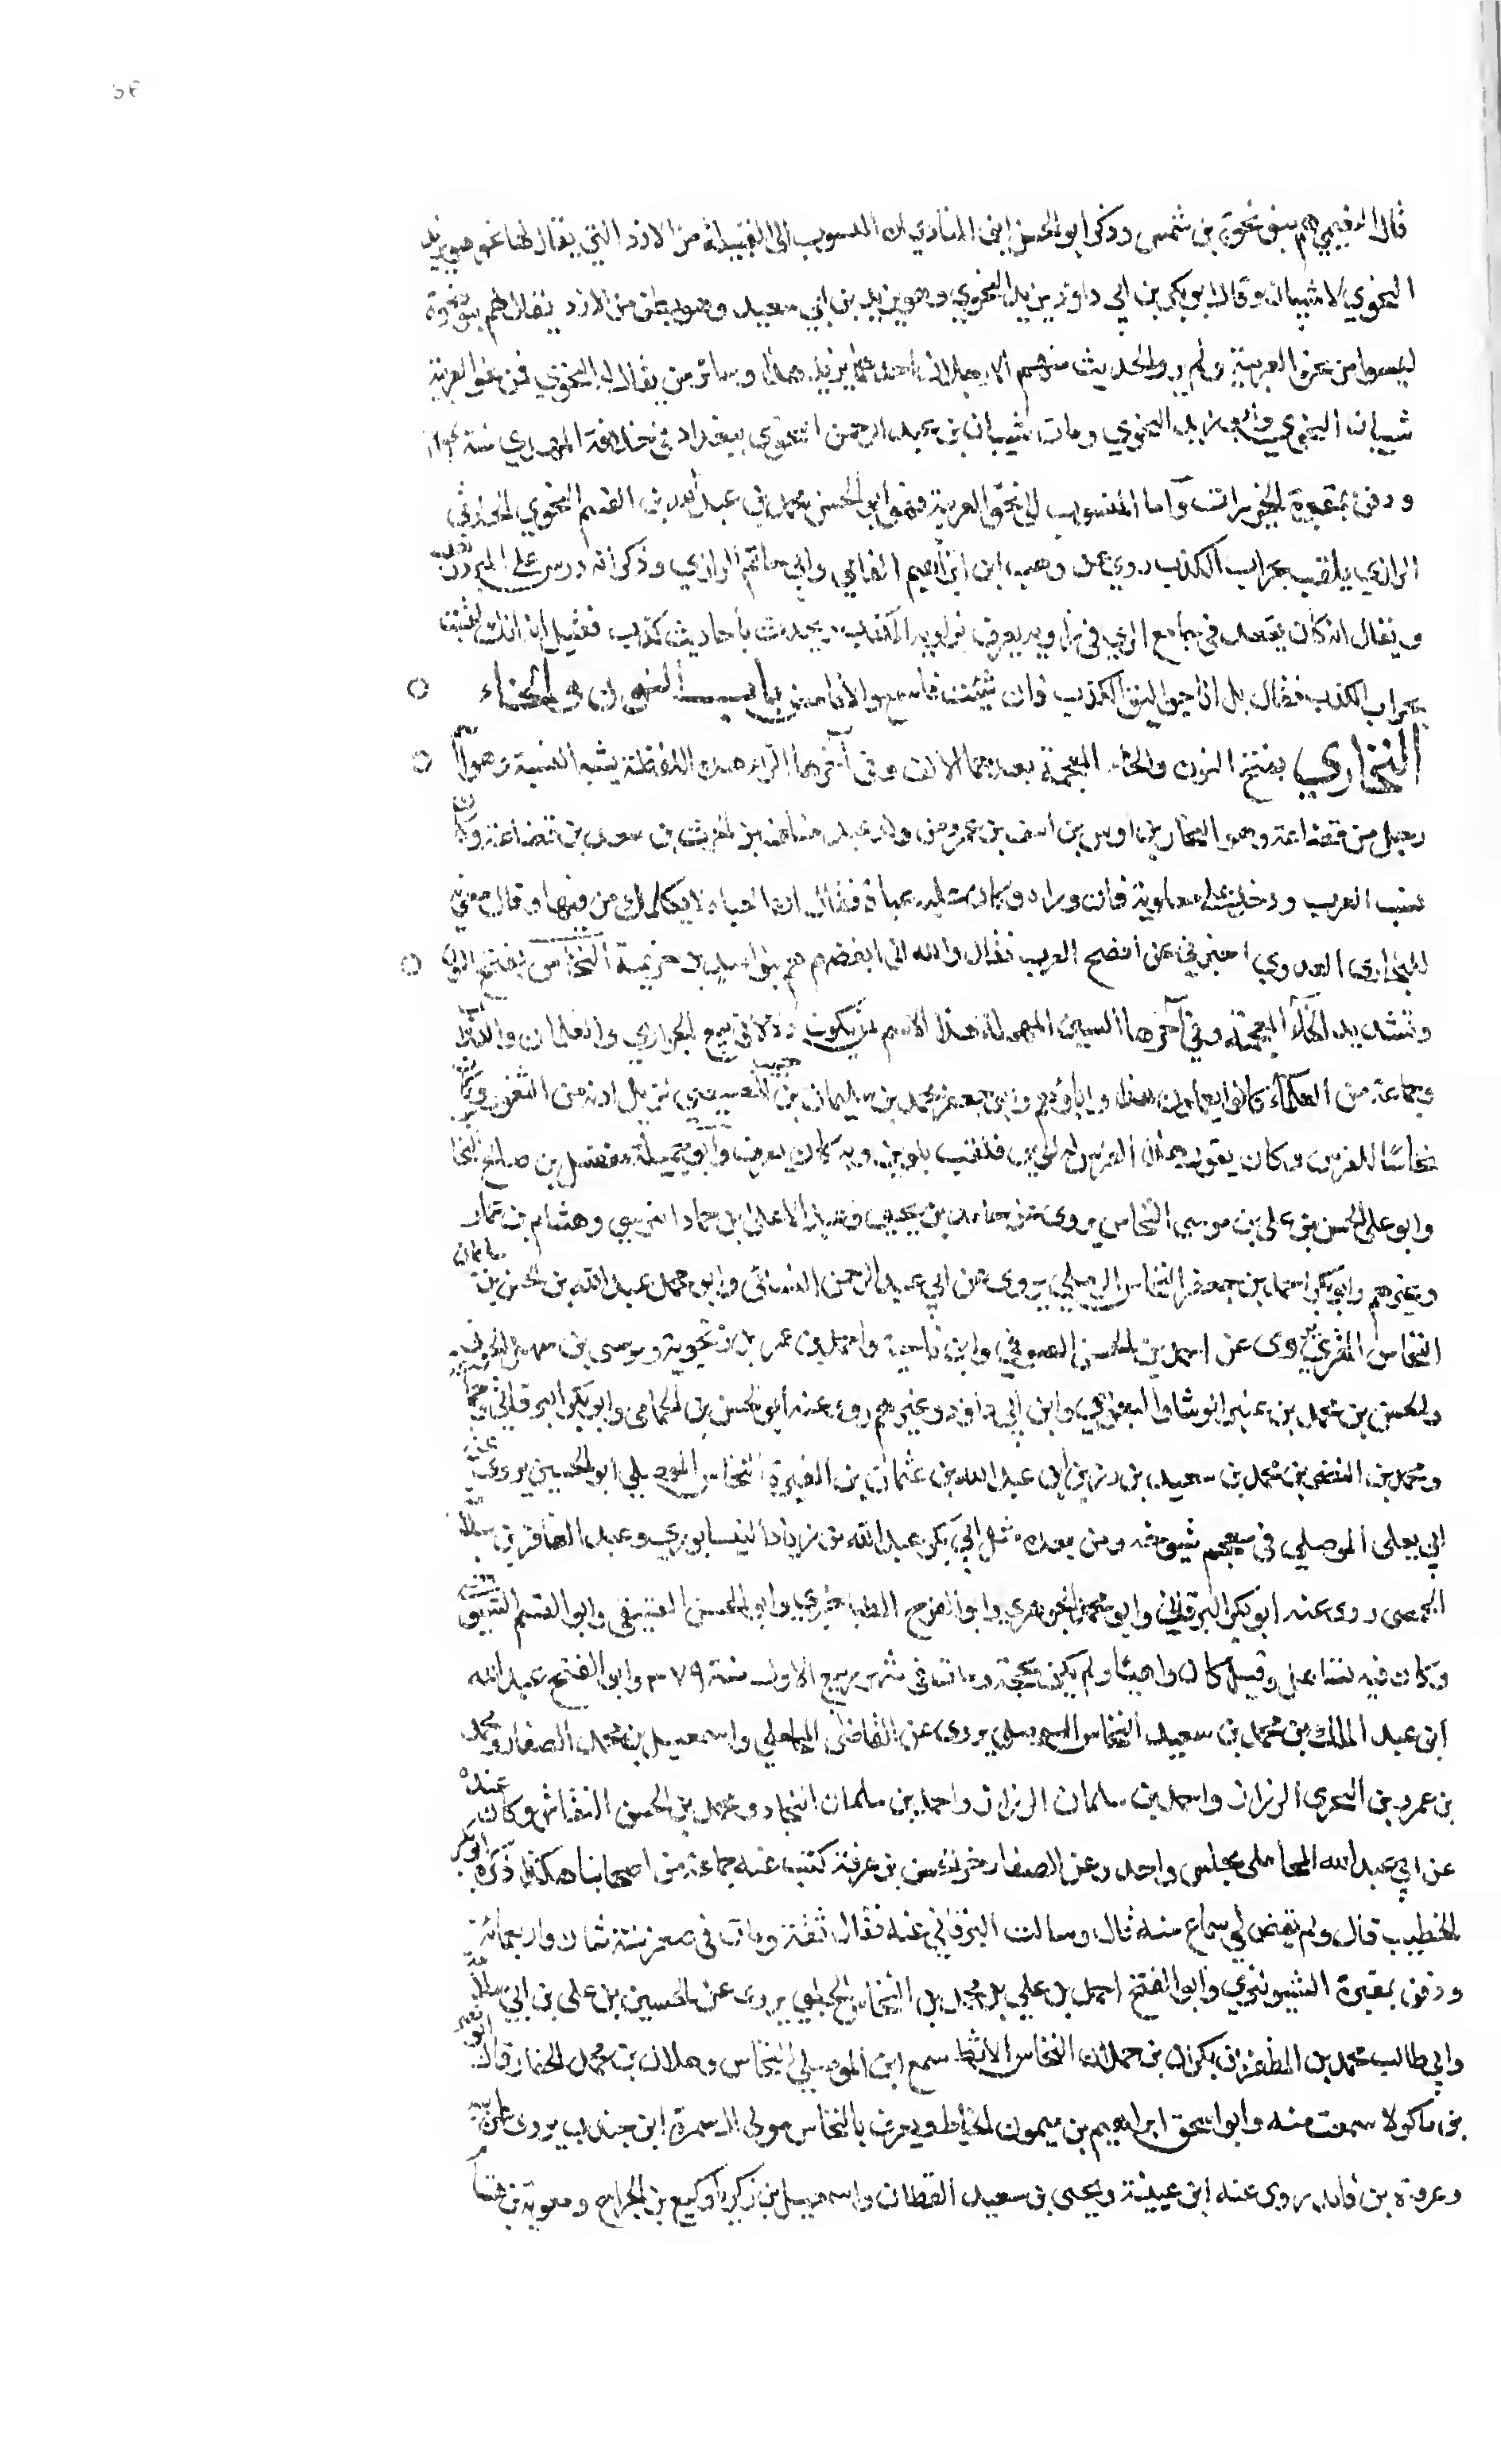 قال الدقيقي هم بنو نحو بن شمس وذكر ابو الحسن ابن المنادي ان المنسوب الى القبيلة من الازد التي يقال لها نحو هو يزيد
النحوي لا شيبان وقال ابو بكر بن ابي داود يزيد النحوي وهو يزيد بن ابي سعيد وهو بطن من الازد يقال لهم بنو نحوة
ليسوا من نحو العربية ولم يرو الحديث منهم الا رجلان احدهما يزيد هذا وسائر من يقال له النحوي فمن نحو العربية
شيبان النحوي يزيد النحوي ومات شيبان بن عبد الرحمن النحوي ببغداد في خلافة المهدي سنة
ودفن بمقبرة الخيزران واما المنسوب الى نحو العربية فهو ابو الحسن محمد بن عبد الله بن القسم النحوي الحارثي
الرازي يلقب بجراب الكذب روى عن وهب ابن ابراهيم الفامي وابي حاتم الرازي وذكر انه درس على المبرد
ويقال انه كان يقعد في جامع الري في زاوية يعرف بزاوية الكذب يحدث باحاديث كذب فقيل له انك لقبت
بجراب الكذب فقال بل انا جواليق الكذب فان شئت فاسمع والا فامض باب النون والخاء
النخاري بفتح النون والخاء المعجمة بعدهما الالف وفي آخرها الراء هذه اللفظة يشبه النسبة وهو اسم
رجل من قضاعة وهو النخار بن اوس بن اسف بن عمرو من ولد عبد مناف بن الحرث بن سعد بن قضاعة وكان
نسب العرب ودخل على معاوية فازدراه وكانت عليه عباة فقال ان العباء لا يكلمك من فيها وقال معوية
للنخاري العدوي اخبرني عن افصح العرب فقال والله اني ابغضهم هم بنو اسد بن خزيمة النخاس بفتح النون
وتشديد الخاء المعجمة وفي آخرها السين المهملة هذا الاسم لمن يكون دلالا في بيع الجواري والغلمان والدواب
وجماعة من العلماء كانوا يعملون هذا واباؤهم وابو جعفر محمد بن سليمان بن حبيب المصيصي نزيل ادنه من الثغور وكان
نخاسا للفرس وكان يقول هذا الفرس له لوين فلقب بلوين وبه كان يعرف وابو جميلة مفضل بن صالح النخاس
وابو علي الحسن بن علي بن موسى النخاس يروى عن حامد بن يحيى وعبد الاعلى بن حماد النرسي وهشام بن عمار
وغيرهم وابو بكر احمد بن جعفر النخاس الرملي يروى عن ابي عبد الرحمن النسائي وابو محمد عبد الله بن الحسن بن سليمان
النخاس المقري روى عن احمد بن الحسن الصوفي وابن ناجية واحمد بن عمر بن زنجوية وموسى بن سهل الجوني
والحسن بن محمد بن عنبر الوشا والبغوي وابن ابي داود وغيرهم روى عنه ابو الحسن بن الحمامي وابو بكر البرقاني
ومحمد بن النضر بن محمد بن سعيد بن رزين ابن عبد الله بن عثمان بن المغيرة النخاس الموصلي ابو الحسين يروى عن
ابي يعلى الموصلي في معجم شيوخه ومن بعده مثل ابي بكر عبد الله بن زياد النيسابوري وعبد الغافر بن سلامة
الحمصي روى عنه ابو بكر البرقاني وابو محمد الجوهري وابو الفرج الطناجيري وابو الحسن العتيقي وابو القسم التنوخي
وكان فيه تساهل وقيل كان واهيا ولم يكن بحجة ومات في شهر ربيع الاول سنة ٣٧٩ وابو الفتح عبد الله
ابن عبد الملك بن محمد بن سعيد النخاس الموصلي يروى عن القاضي المحاملي واسمعيل بن محمد الصفار ومحمد
بن عمرو بن البحتري الرزاز واحمد بن سلمان الرزاز واحمد بن سلمان النجاد ومحمد بن الحسن النقاش وكان عنده
عن ابي عبد الله المحاملي مجلس واحد وعن الصفار جزء الحسن بن عرفة كتب عنه جماعة من اصحابنا هكذا ذكره ابو بكر
الخطيب قال ولم يقض لي سماع منه قال وسالت البرقاني عنه فقال ثقة ومات في صفر سنة ثمان واربعمائة
ودفن بمقبرة الشونيزي وابو الفتح احمد بن علي بن محمد بن النخاس الحلبي يروى عن الحسين بن علي بن ابي سلامة
وابي طالب محمد بن المظفر بن بكران بن حمدان النخاس الانماط سمع ابن الموصلي النخاس وهلال بن محمد الحفار قال ابو نصر
بن ماكولا سمعت منه وابو اسحق ابراهيم بن ميمون الخياط ويعرف بالنخاس مولى ال سمرة ابن جندب يروى عن
وعروة بن فايد روى عنه ابن عيينة ويحيى بن سعيد القطان واسمعيل بن زكريا وكيع بن الجراح ومعوية بن هشام